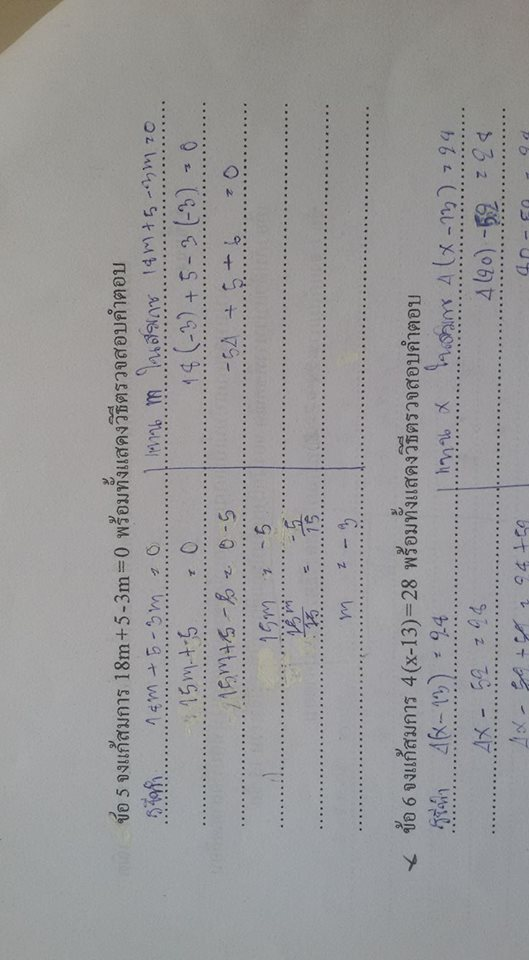 ข้อ 5 จงแก้สมการ 18m+5-3m=0 พร้อมทั้งแสดงวิธีตรวจสอบคำตอบ
วิธีทำ 18m + 5 - 3m = 0
15m + 5 = 0
15m + 5 - 5 = 0 - 5
15m = -5
15m/15 = -5/15
m = -3
แทน m ในสมการ 18m + 5 - 3m = 0
18(-3) + 5 - 3(-3) = 0
-54 + 5 + 6 = 0
ข้อ 6 จงแก้สมการ 4(x-13)=28 พร้อมทั้งแสดงวิธีตรวจสอบคำตอบ
วิธีทำ 4(x-13) = 28
4x - 52 = 28
แทน x ในสมการ 4(x-13) = 28
4(20) - 52 = 28